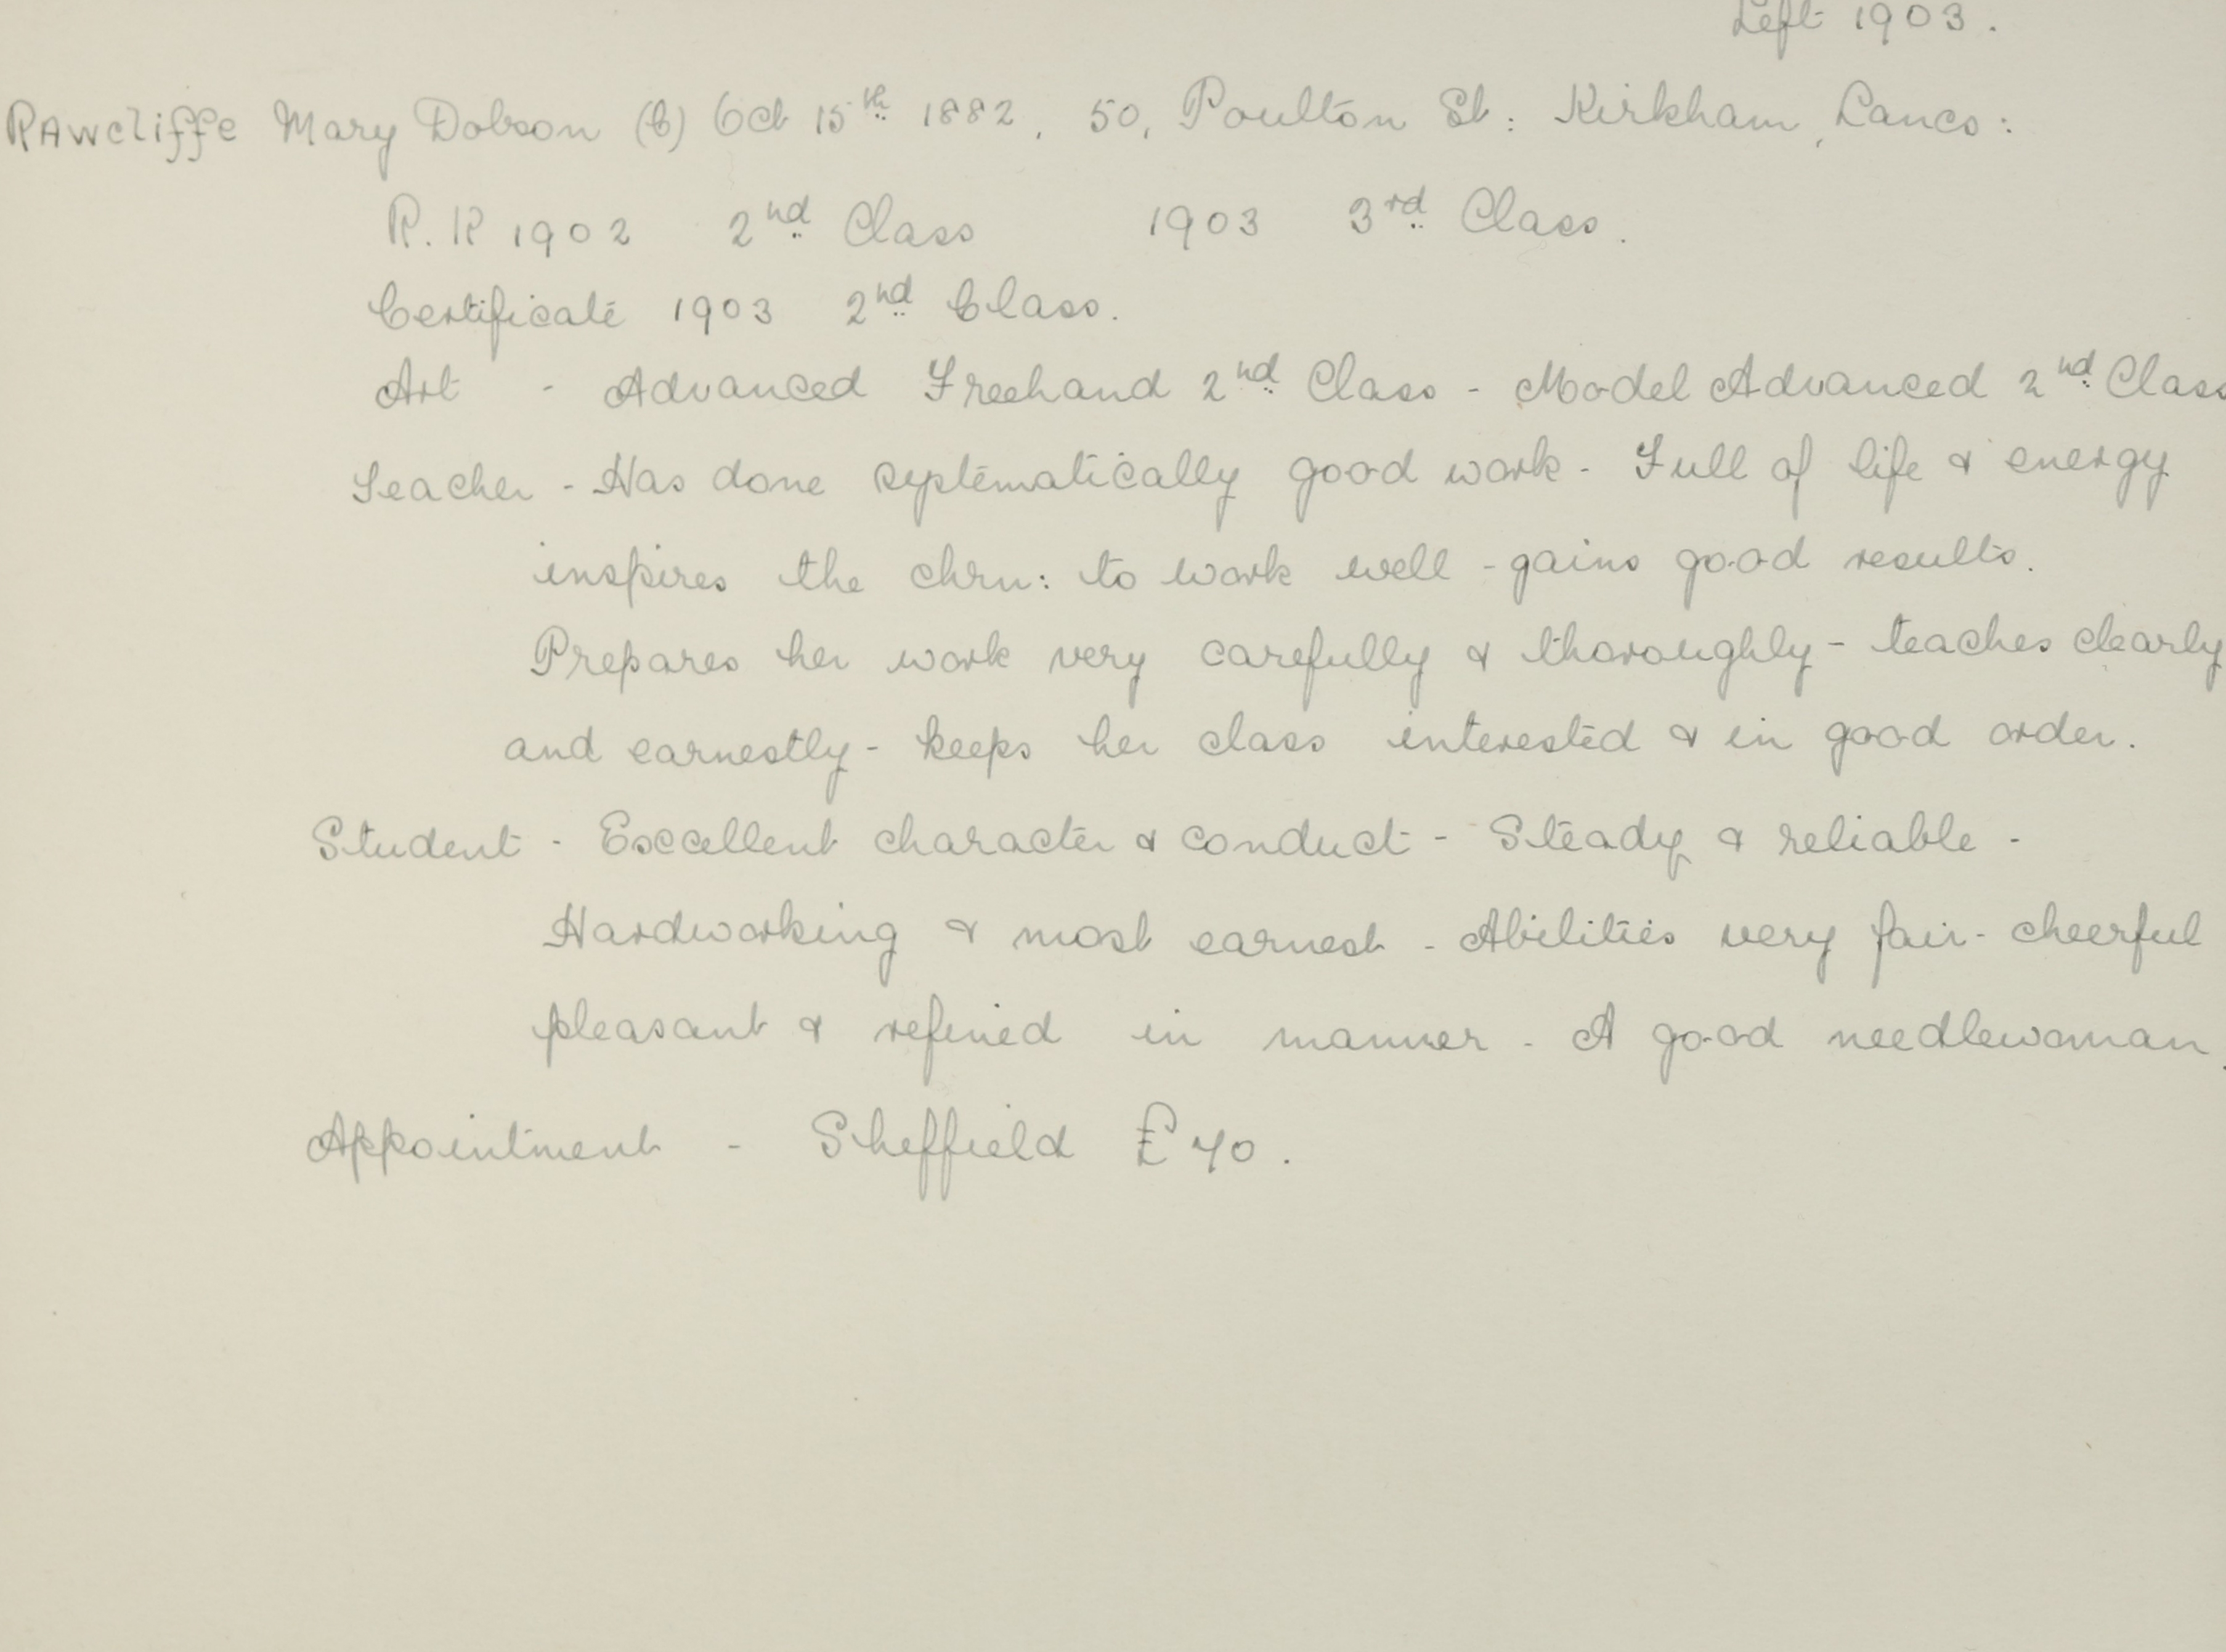 Left 1903.
RAWcliffe Mary Dobson (C) Oct 15th 1882, 50, Poulton St: Kirkham, Lancs:
R.K 1902 2nd Class 1903 3rd Class.
Certificate 1903 2nd Class.
Art - Advanced Freehand 2nd Class - Model Advanced 2nd Class
Teacher - Has done systematically good work - Full of life & energy
inspires the chrn: to work well - gains good results.
Prepares her work very carefully & thoroughly - teaches clearly
and earnestly - keeps her class interested & in good order.
Student - Excellent character & conduct - Steady & reliable -
Hardworking & most earnest - Abilities very fair - cheerful
pleasant & refined in manner - A good needlewoman.
Appointment - Sheffield £70.